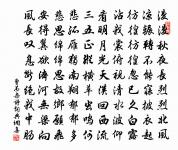 漫漫秋夜長烈烈北風
涼輾轉不能寐披衣起
彷徨彷徨忽已久白露
沾我裳俯視清水波仰
看明月光天漢回西流
三五正縱橫草蟲鳴何
悲孤雁獨南翔鬱鬱多
悲思綿綿思故鄉願飛
安得翼欲濟河無梁向
風長歎息斷絕我中腸
曹丕雜詩